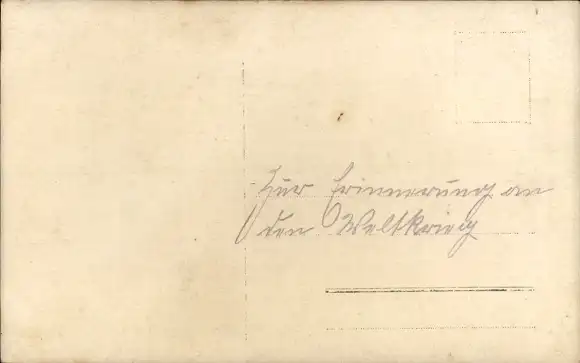 Zur Erinnerung an
den Weltkrieg